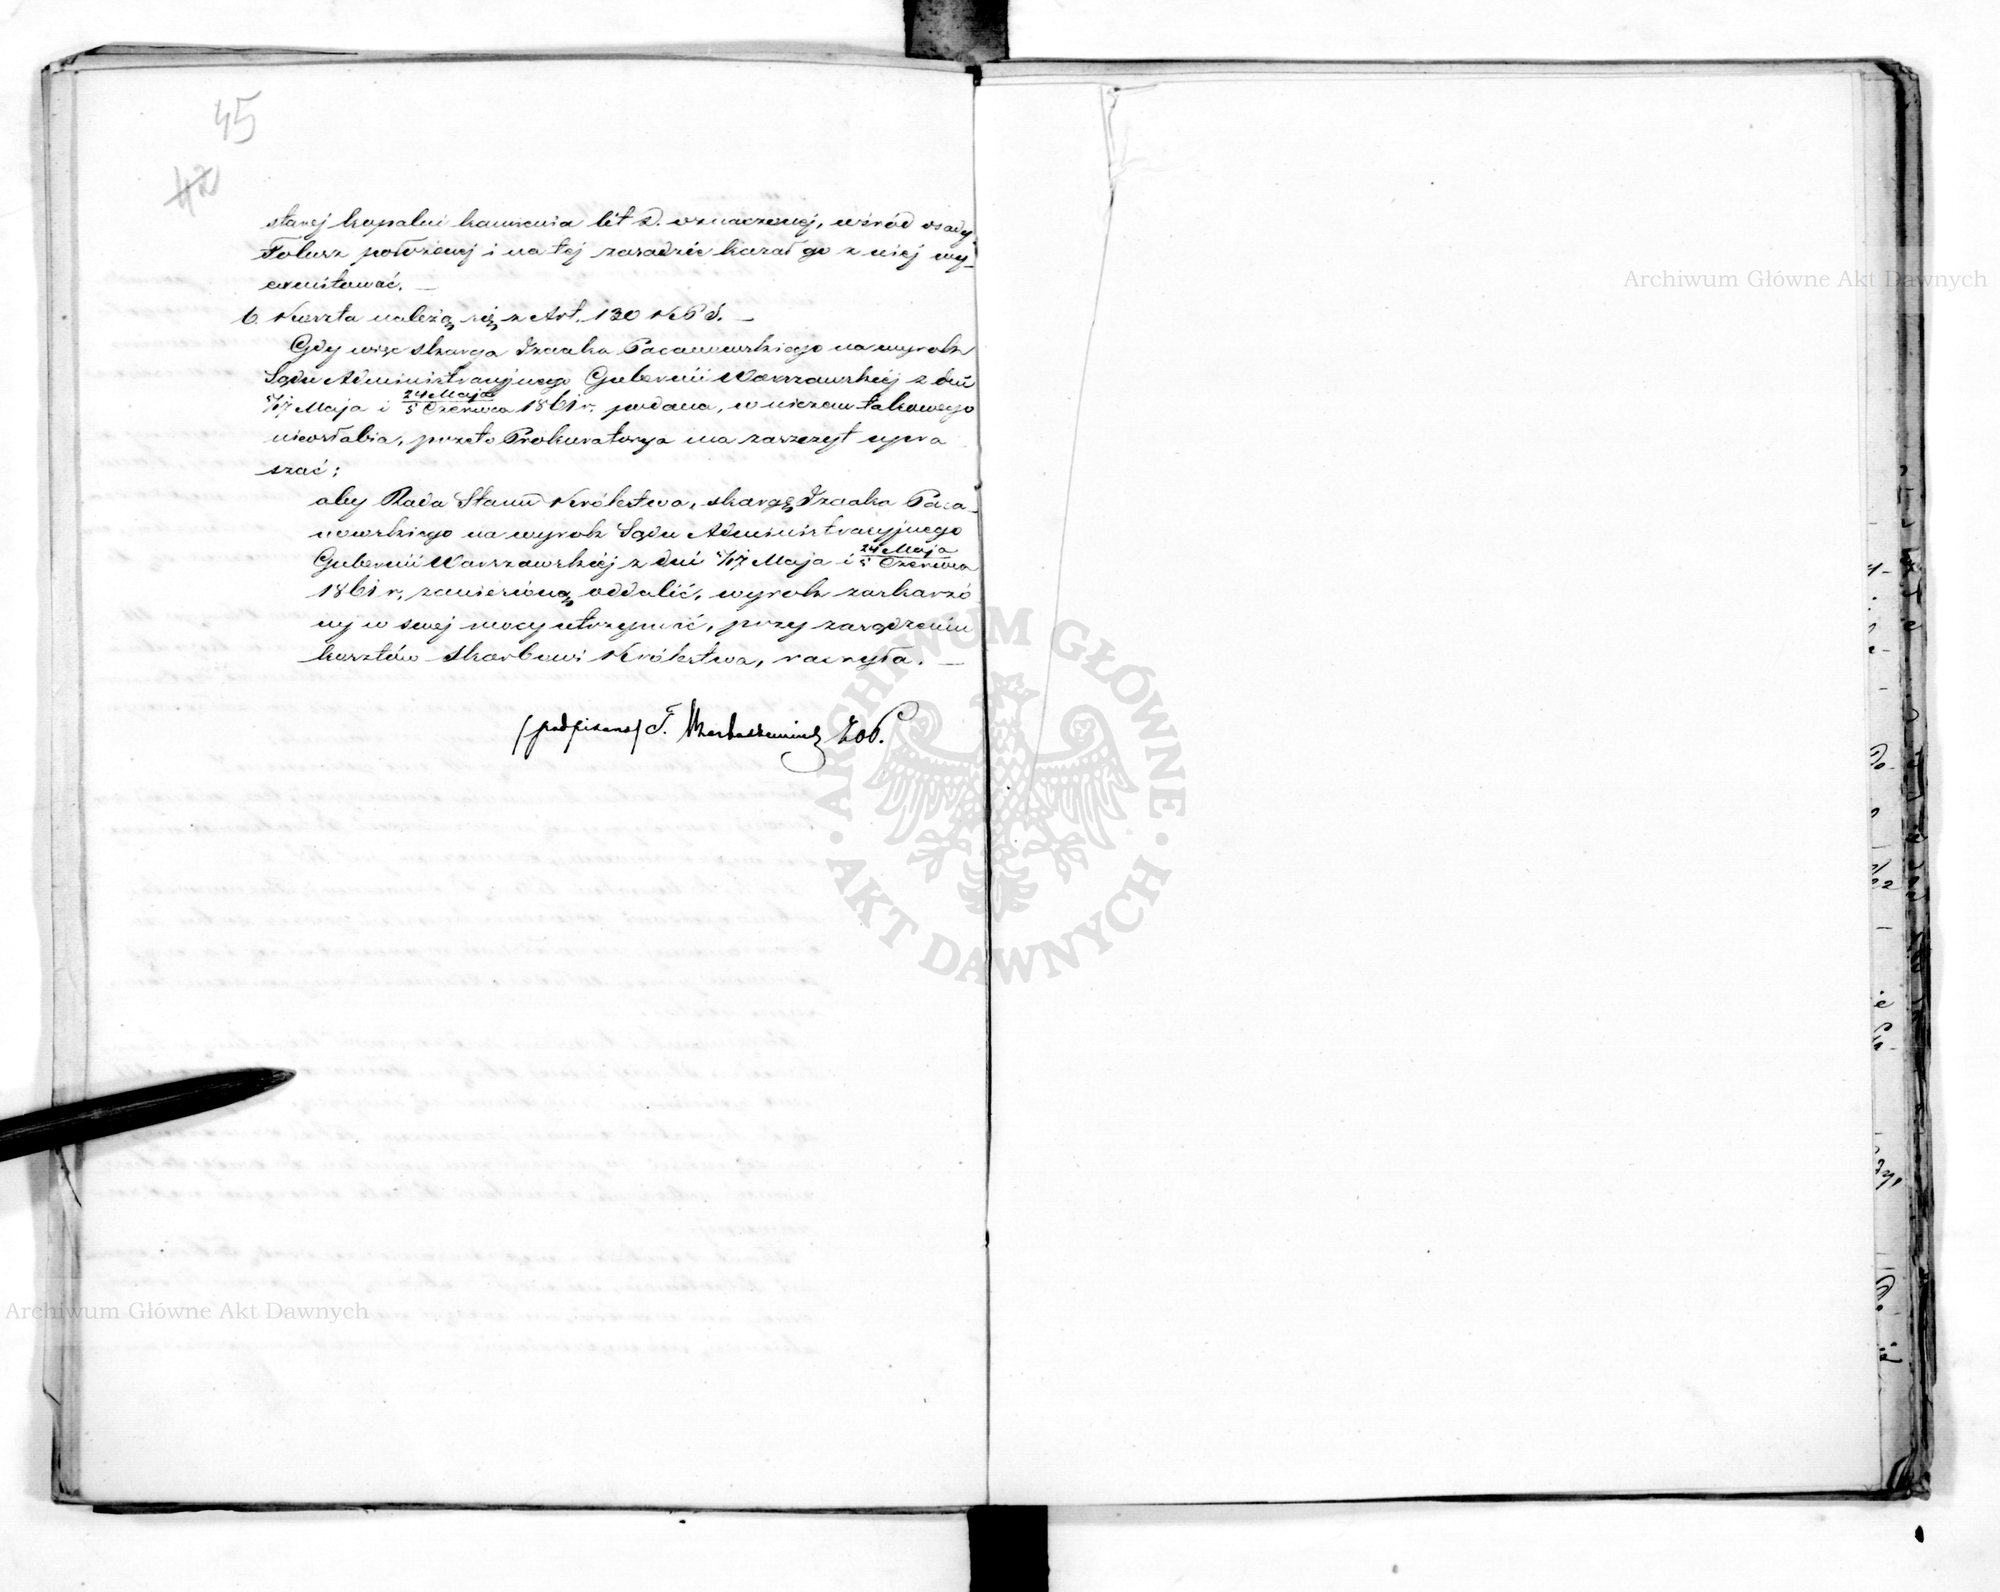 45
42
starej kopalni kamienia lit D. oznaczonej, wśród osady
Folusz położonej i na tej zasadzie kazał go z niej wy-
exmitować. —
6. Koszta należą się z Art. 130 K.P.S. —
Gdy więc skarga Izaaka Pacanowskiego na wyrok
Sądu Administracyjnego Gubernii Warszawskiej z dni
5/17 Maja i 24 Maja/5 Czerwca 1861 r. podana, w niczem takowego
nieosłabia, przeto Prokuratorya ma zaszczyt upra
szać:
aby Rada Stanu Królestwa, skargę Izaaka Paca-
nowskiego na wyrok Sądu Administracyjnego
Gubernii Warszawskiej z dni 5/17 Maja i 24 Maja/5 Czerwca
1861 r. zaniesioną oddalić, wyrok zaskarżo
ny w swej mocy utrzymać, przy zasądzeniu
kosztów Skarbowi Królestwa, raczyła. —
(podpisano) T.
Archiwum Główne Akt Dawnych
ARCHIWUM GŁÓWNE · AKT DAWNYCH ·
Archiwum Główne Akt Dawnych